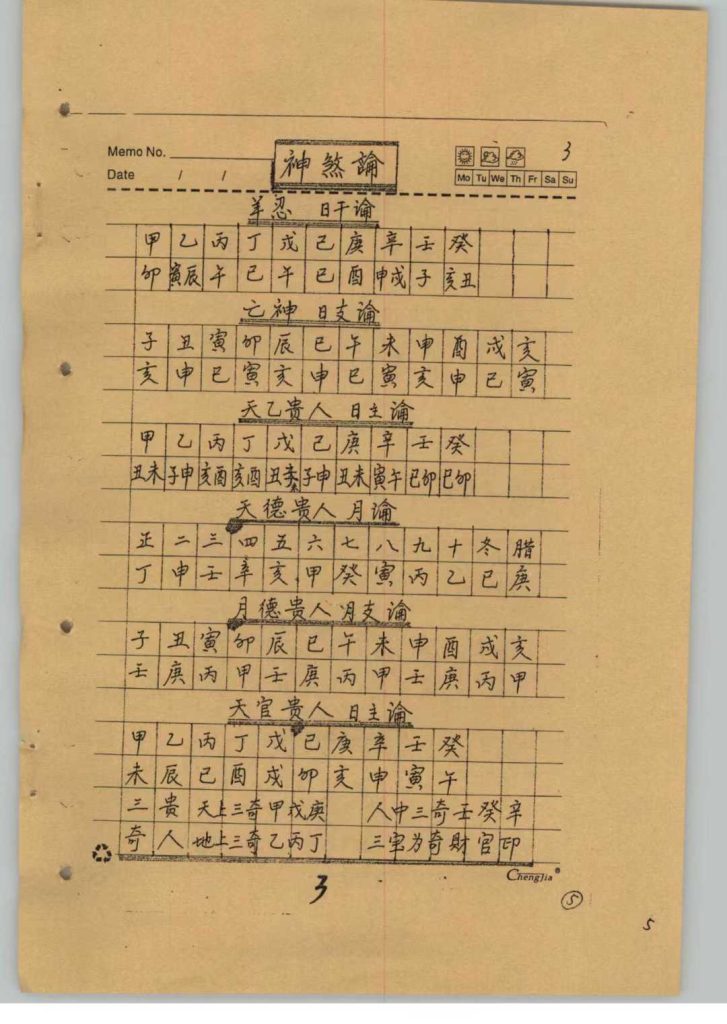 Memo No. 神煞論 3
Date / / Mo Tu We Th Fr Sa Su
羊忍 日干论
甲 乙 丙 丁 戊 己 庚 辛 壬 癸
卯 寅辰 午 巳 午 巳 酉 申戌 子 亥丑
亡神 日支論
子 丑 寅 卯 辰 巳 午 未 申 酉 戌 亥
亥 申 巳 寅 亥 申 巳 寅 亥 申 巳 寅
天乙贵人 日主論
甲 乙 丙 丁 戊 己 庚 辛 壬 癸
丑未 子申 亥酉 亥酉 丑未 子申 丑未 寅午 巳卯 巳卯
天德贵人 月論
正 二 三 四 五 六 七 八 九 十 冬 腊
丁 申 壬 辛 亥 甲 癸 寅 丙 乙 巳 庚
月德贵人 月支論
子 丑 寅 卯 辰 巳 午 未 申 酉 戌 亥
壬 庚 丙 甲 壬 庚 丙 甲 壬 庚 丙 甲
天官贵人 日主論
甲 乙 丙 丁 戊 己 庚 辛 壬 癸
未 辰 巳 酉 戌 卯 亥 申 寅 午
三 贵 天上三奇甲戊庚 人中三奇壬癸辛
奇 人 地上三奇乙丙丁 三字为奇財官印
ChengJia®
3
⑤
5